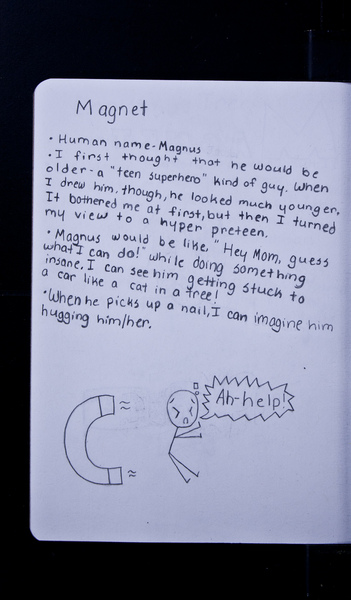 Magnet
• Human name-Magnus
• I first thought that he would be
older-a "teen superhero" kind of guy. When
I drew him, though, he looked much younger.
It bothered me at first, but then I turned
my view to a hyper preteen.
• Magnus would be like, "Hey Mom, guess
what I can do!" while doing something
insane. I can see him getting stuck to
a car like a cat in a tree!
• When he picks up a nail, I can imagine him
hugging him/her.
Ah-help!